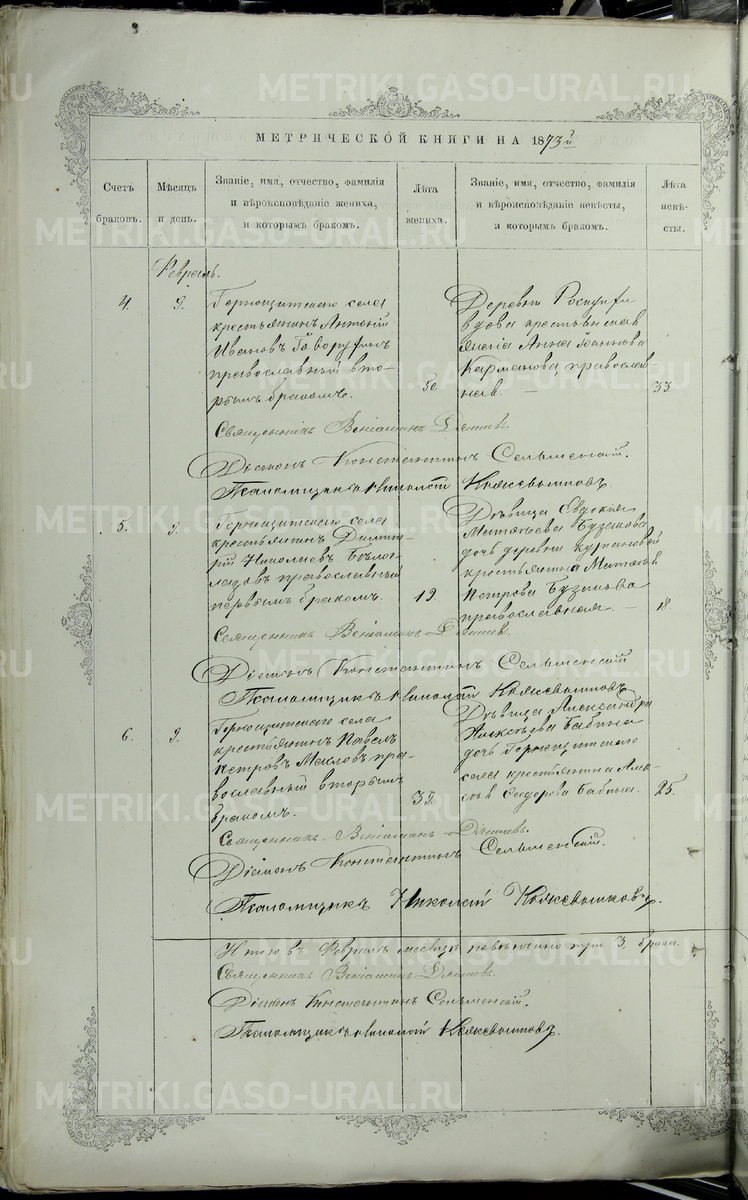 METRIKI.GASO-URAL.RU
МЕТРИЧЕСКОЙ КНИГИ НА 1873й
Счетъ браковъ.
Мѣсяцъ и день.
Званіе, имя, отчество, фамилія
и вѣроисповѣданіе жениха,
и которымъ бракомъ.
Лѣта жениха.
Званіе, имя, отчество, фамилія
и вѣроисповѣданіе невѣсты,
и которымъ бракомъ.
Лѣта невѣсты.
Февраль.
4. 9.
Горнощитскаго села
крестьянинъ Антоній
Ивановъ
православный вто-
рымъ бракомъ.
50.
Деревни
вдова крестьянская
Анна Іоаннова
Карманова, православ
ная.
33.
Священникъ Веніаминъ
Діаконъ Константинъ Сельменскій.
Псаломщикъ Николай
5. 9.
Горнощитскаго села
крестьянинъ Димит-
рій Николаевъ Бѣлог-
лазовъ православный
первымъ бракомъ.
19.
Дѣвица Евдокія
Матѳеева Бузанова
дочь деревни Кургановой
крестьянина Матѳея
Петрова Бузанова
православная.
18.
Священникъ Веніаминъ
Діаконъ Константинъ Сельменскій
Псаломщикъ Николай
6. 9.
Горнощитскаго села
крестьянинъ Павелъ
Петровъ Масловъ пра-
вославный вторымъ
бракомъ.
39.
Дѣвица Александра
Алексѣева Бабина
дочь Горнощитскаго
села крестьянина Алек-
сѣя Сидорова Бабина.
25.
Священникъ Веніаминъ
Діаконъ Константинъ Сельменскій.
Псаломщикъ Николай
Итого въ Февралѣ мѣсяцѣ повѣнчано три 3. брака.
Священникъ Веніаминъ
Діаконъ Константинъ Сельменскій.
Псаломщикъ Николай